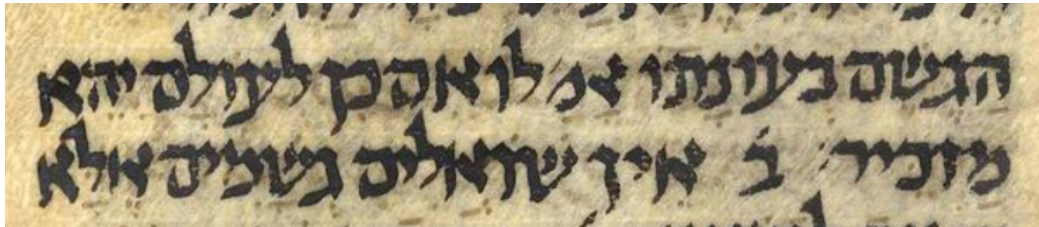 הגשם בעונתו אמ' לו אם כן לעולם יהא
מזכיר ב אין שואלים גשמים אלא